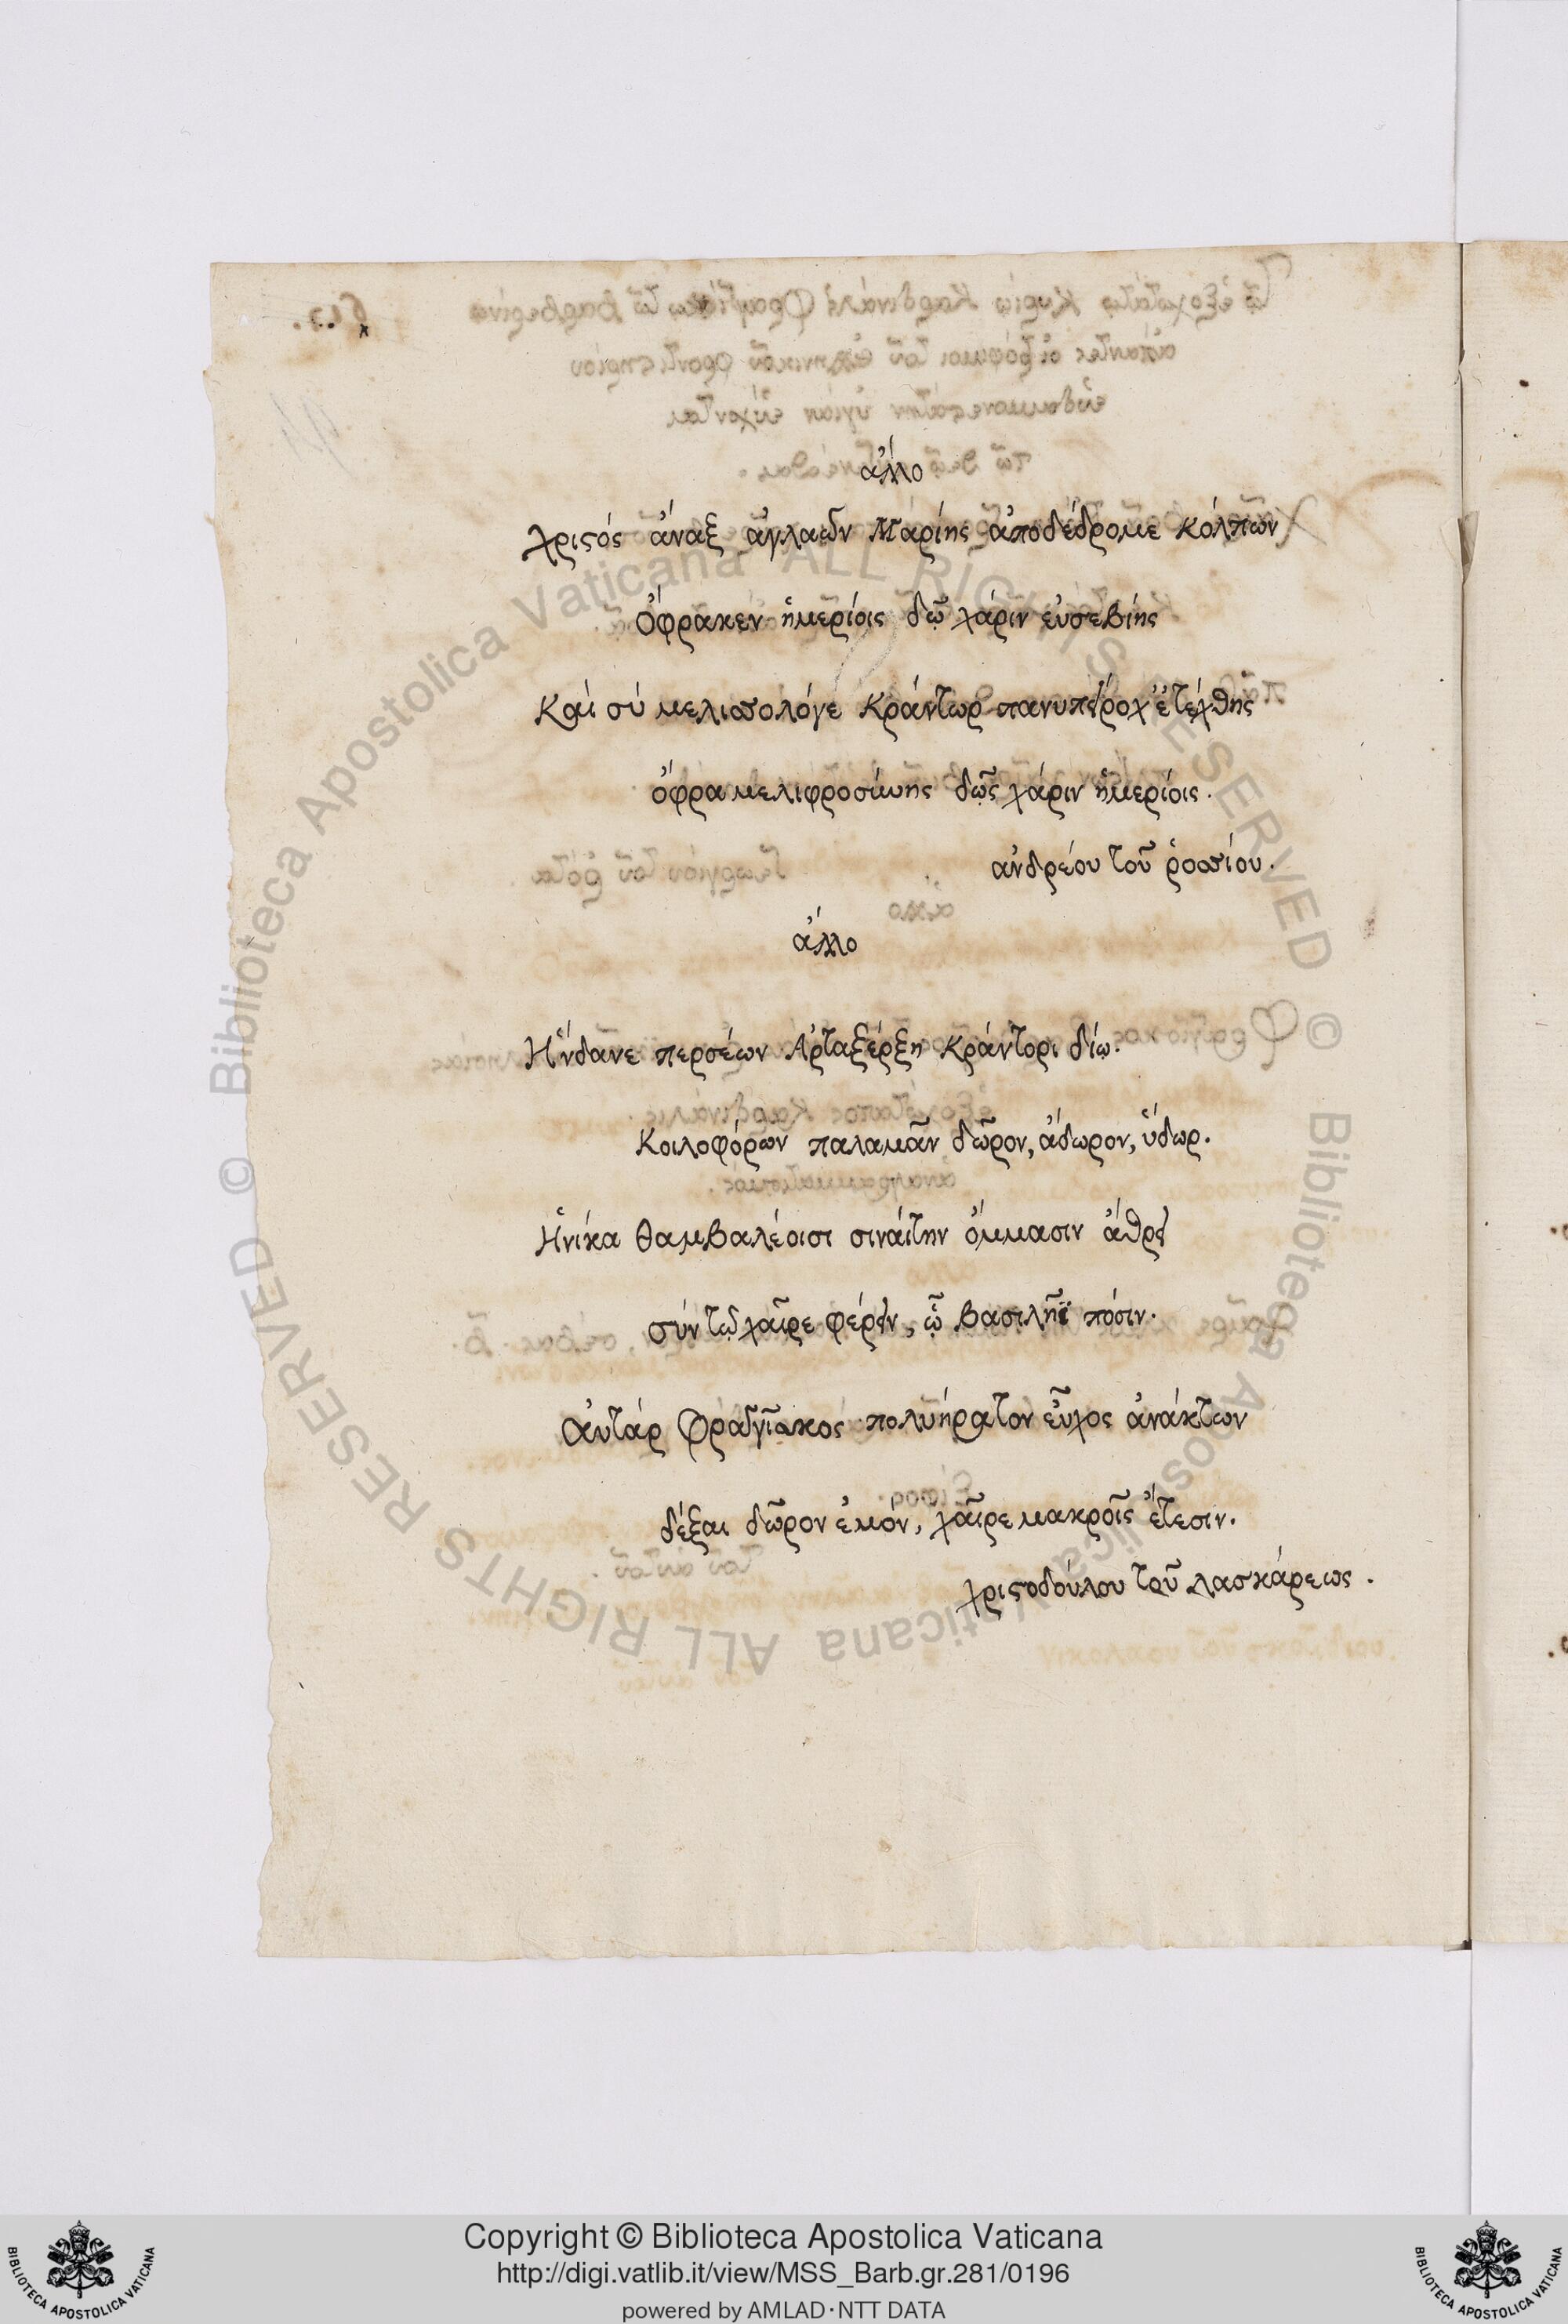 ἄλλο
Χριστός ἄναξ ἀγλαῶν Μαρίης ἀποδέδρομε κόλπων
Ὄφρακεν ἡμερίοις δῷ χάριν εὐσεβίης
Καί σύ μελισσολόγε Κράντωρ πανυπείροχ' ἐτέχθης
ὄφρα μελιφροσύνης δῷς χάριν ἡμερίοις.
ἀνδρέου τοῦ ῥοσσίου.
ἄλλο
Ἥνδανε περσέων Ἀρταξέρξη Κράντορι δίῳ.
Κοιλοφόρων παλαμᾶν δῶρον, ἄδωρον, ὕδωρ.
Ἡνίκα θαμβαλέοισι σιναίτην ὄμμασιν ἄθρει
σύν τῷ χαῖρε φέρειν, ᾧ βασιλῆϊ πόσιν.
Αὐτάρ Φραγγῖακος πολυήρατον εὖχος ἀνάκτων
δέξαι δῶρον ἐμόν, χαῖρε μακροῖς ἔτεσιν.
Χριστοδούλου τοῦ Λασκάρεως.
© Biblioteca Apostolica Vaticana ALL RIGHTS RESERVED
© Biblioteca Apostolica Vaticana ALL RIGHTS RESERVED
Copyright © Biblioteca Apostolica Vaticana
http://digi.vatlib.it/view/MSS_Barb.gr.281/0196
powered by AMLAD·NTT DATA
BIBLIOTECA APOSTOLICA VATICANA
BIBLIOTECA APOSTOLICA VATICANA